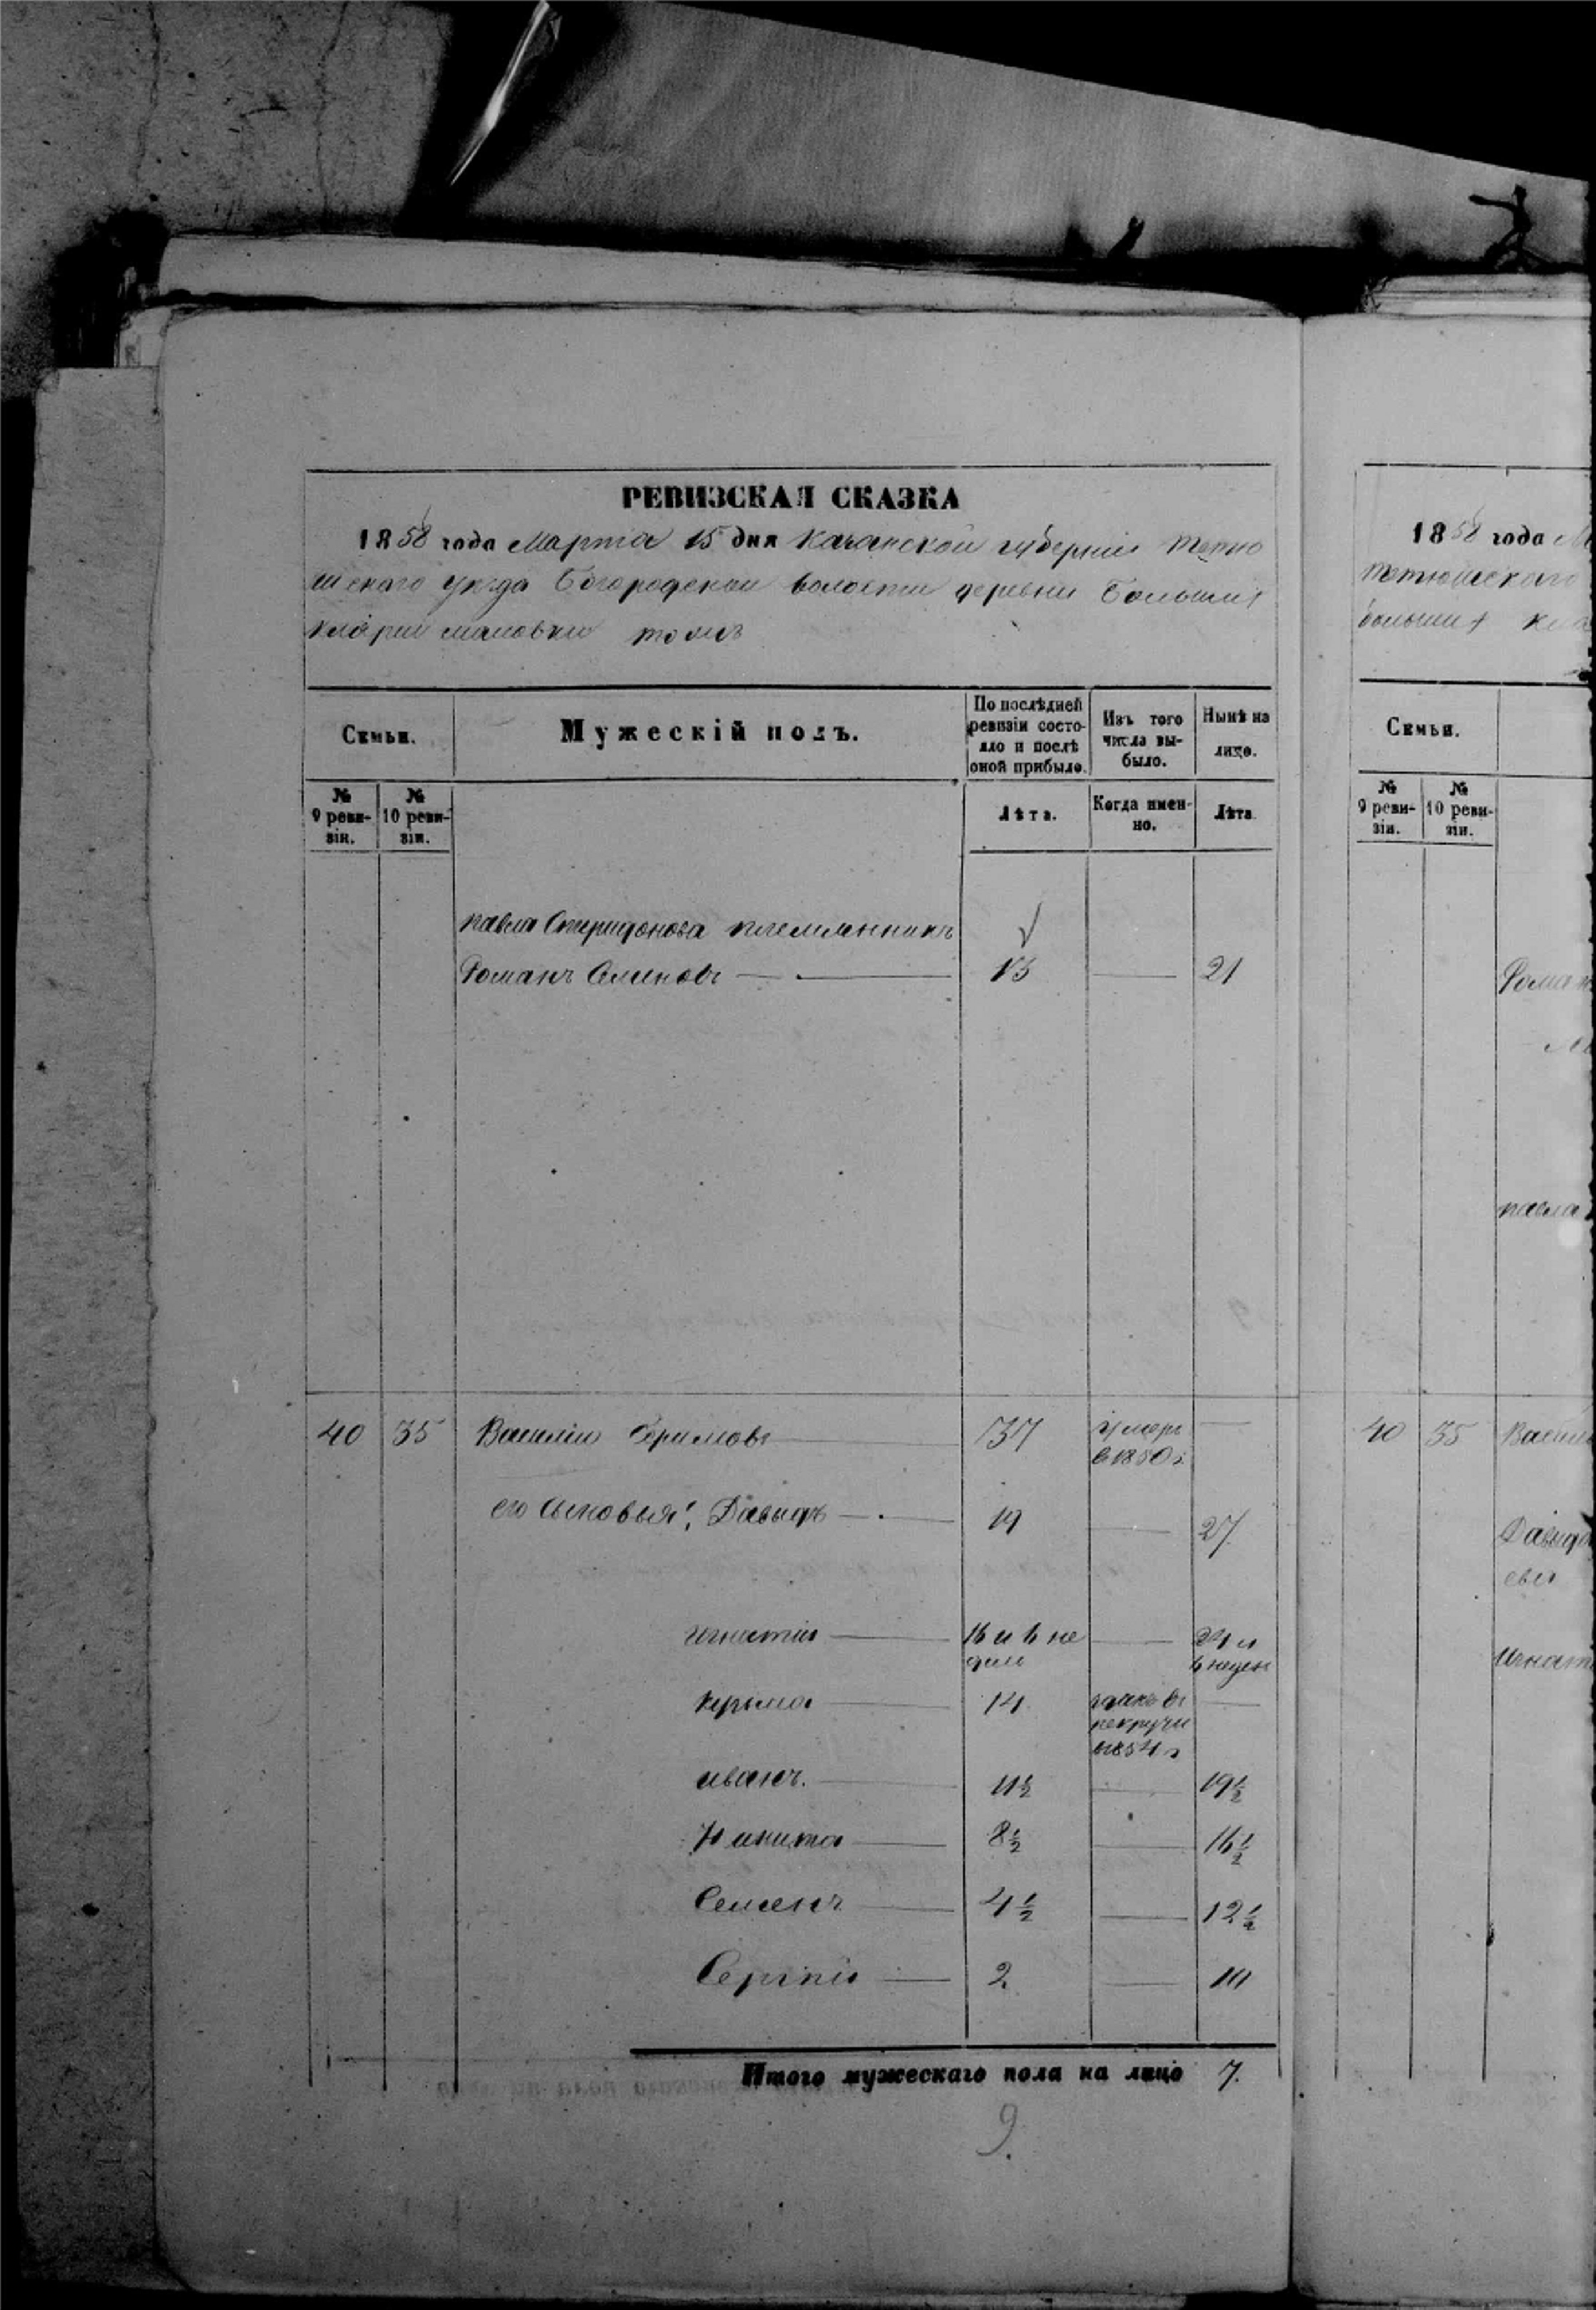 РЕВИЗСКАЯ СКАЗКА
1858 года Марта 15 дня Казанской губерніи Тетю
шскаго уезда Богородской волости деревни Большихъ
тожъ
Семьи.
Мужескій полъ.
По послѣдней ревизіи состо-
яло и послѣ
оной прибыло.
Изъ того
числа вы-
было.
Нынѣ на
лицо.
№
9 реви-
зіи.
№
10 реви-
зіи.
Лѣта.
Когда имен-
но.
Лѣта.
павла Спиридонова племянникъ
Романъ Семеновъ 13 21
40 35 Василіи 37 умеръ
в 1850 г
его сыновья: Давыдъ 19 27
игнатіи 16 и 6 не 24 и
дель 6 недел
14 в
рекруты
в 1854 г
иванъ 11½ 19½
Никита 8½ 16½
Семенъ 4½ 12½
Сергіи 2 10
Итого мужескаго пола на лицо 7.
9.
1858 года
тетюшскаго
большихъ
Семьи.
№
9 реви-
зіи.
№
10 реви-
зіи.
павла
40 35